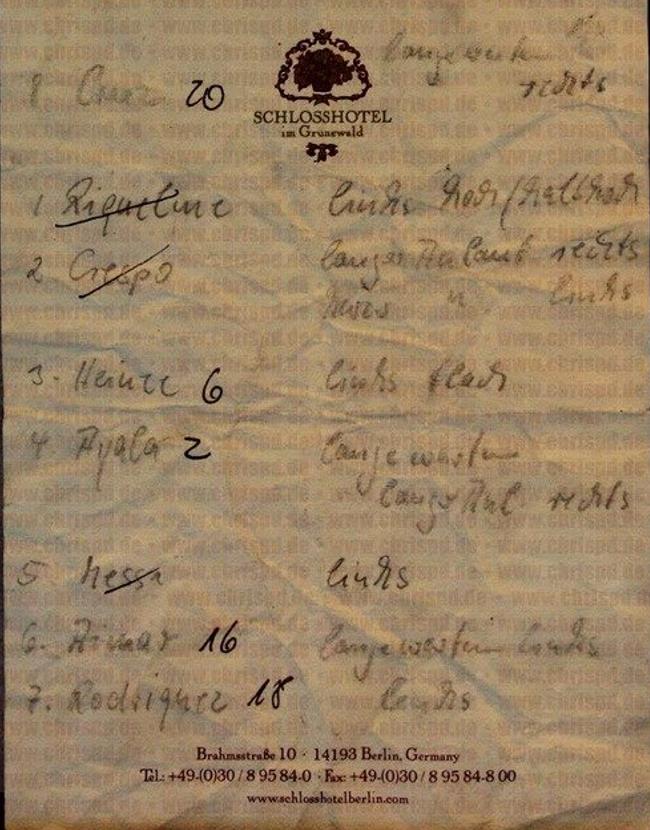 lange warten
8 Cruz 20 rechts
SCHLOSSHOTEL
im Grunewald
1 Riquelme links hoch/halbhoch
2 Crespo langer Anlauf rechts
links
3. Heinze 6 links flach
4 Ayala 2 lange warten
langer Anl rechts
5 Messi links
6. Aimar 16 lange warten links
7. Rodriguez 18 links
Brahmsstraße 10 · 14193 Berlin, Germany
Tel.: +49-(0)30 / 8 95 84-0 · Fax: +49-(0)30 / 8 95 84-8 00
www.schlosshotelberlin.com